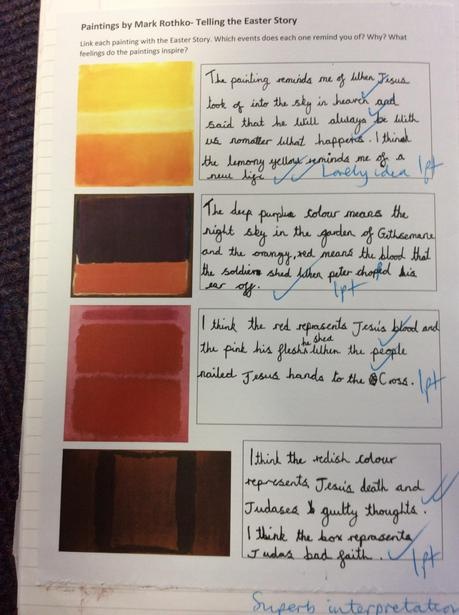 Paintings by Mark Rothko- Telling the Easter Story
Link each painting with the Easter Story. Which events does each one remind you of? Why? What
feelings do the paintings inspire?
The painting reminds me of When Jesus
look of into the sky in heaven and
said that he Will always be With
us nomatter What happens. I think
the lemony yellow reminds me of a
new life.
Lovely idea 1pt
The deep purplue colour means the
night sky in the garden of Gethsemane
and the orangy, red means the blood that
the soldiers shed When peter chopped his
ear off.
1pt
I think the red represents Jesus blood and
the pink his flesh he shed When the people
nailed Jesus hands to the Cross.
1pt
I think the redish colour
represents Jesus death and
Judases guilty thoughts.
I think the box represents
Judas bad faith.
1pt
Superb interpretation